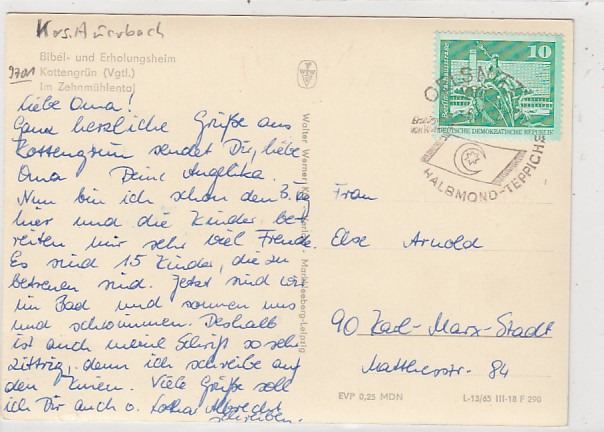 Krs. Auerbach
Bibel- und Erholungsheim
9701 Kottengrün (Vgtl.)
Im Zehnmühlental
Liebe Oma!
Ganz herzliche Grüße aus
Kottengrün sendet Dir, liebe
Oma Deine Angelika.
Nun bin ich schon den 3. Tag
hier und die Kinder be-
reiten mir sehr viel Freude.
Es sind 15 Kinder, die zu
betreuen sind. Jetzt sind wir
im Bad und sonnen uns
und schwimmen. Deshalb
ist auch meine Schrift so sehr
zittrig, denn ich schreibe auf
den Knien. Viele Grüße soll
ich Dir auch v. Lothar Albrecht
schreiben.
Walter Werner Verlag Markkleeberg-Leipzig
10
DEUTSCHE DEMOKRATISCHE REPUBLIK
OELSNITZ
HALBMOND-TEPPICHE
Frau
Else Arnold
90 Karl-Marx-Stadt
Mattherstr. 84
EVP 0,25 MDN
L-13/65 III-18 F 290